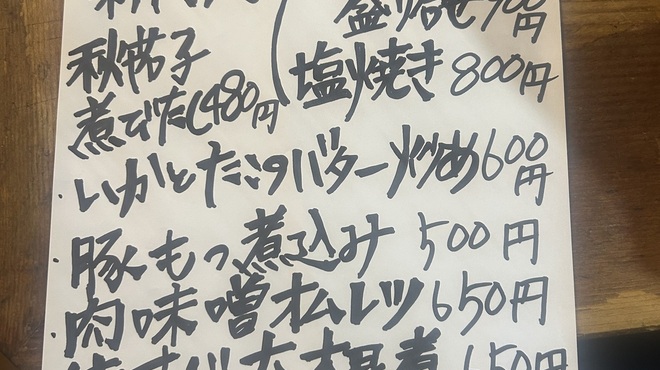 盛り合せ900円
秋茄子
煮びたし480円
塩焼き 800円
・いかとたこのバター炒め600円
豚もつ煮込み 500円
・肉味噌オムレツ650円
大根煮 650円